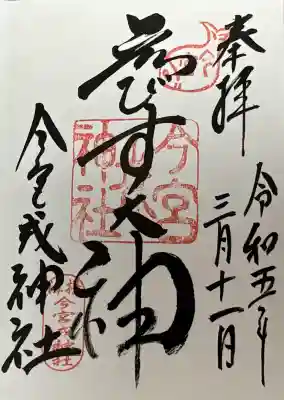 奉拝
令和五年
三月十一日
ゑびす大神
今宮戎神社
今宮
戎
神社